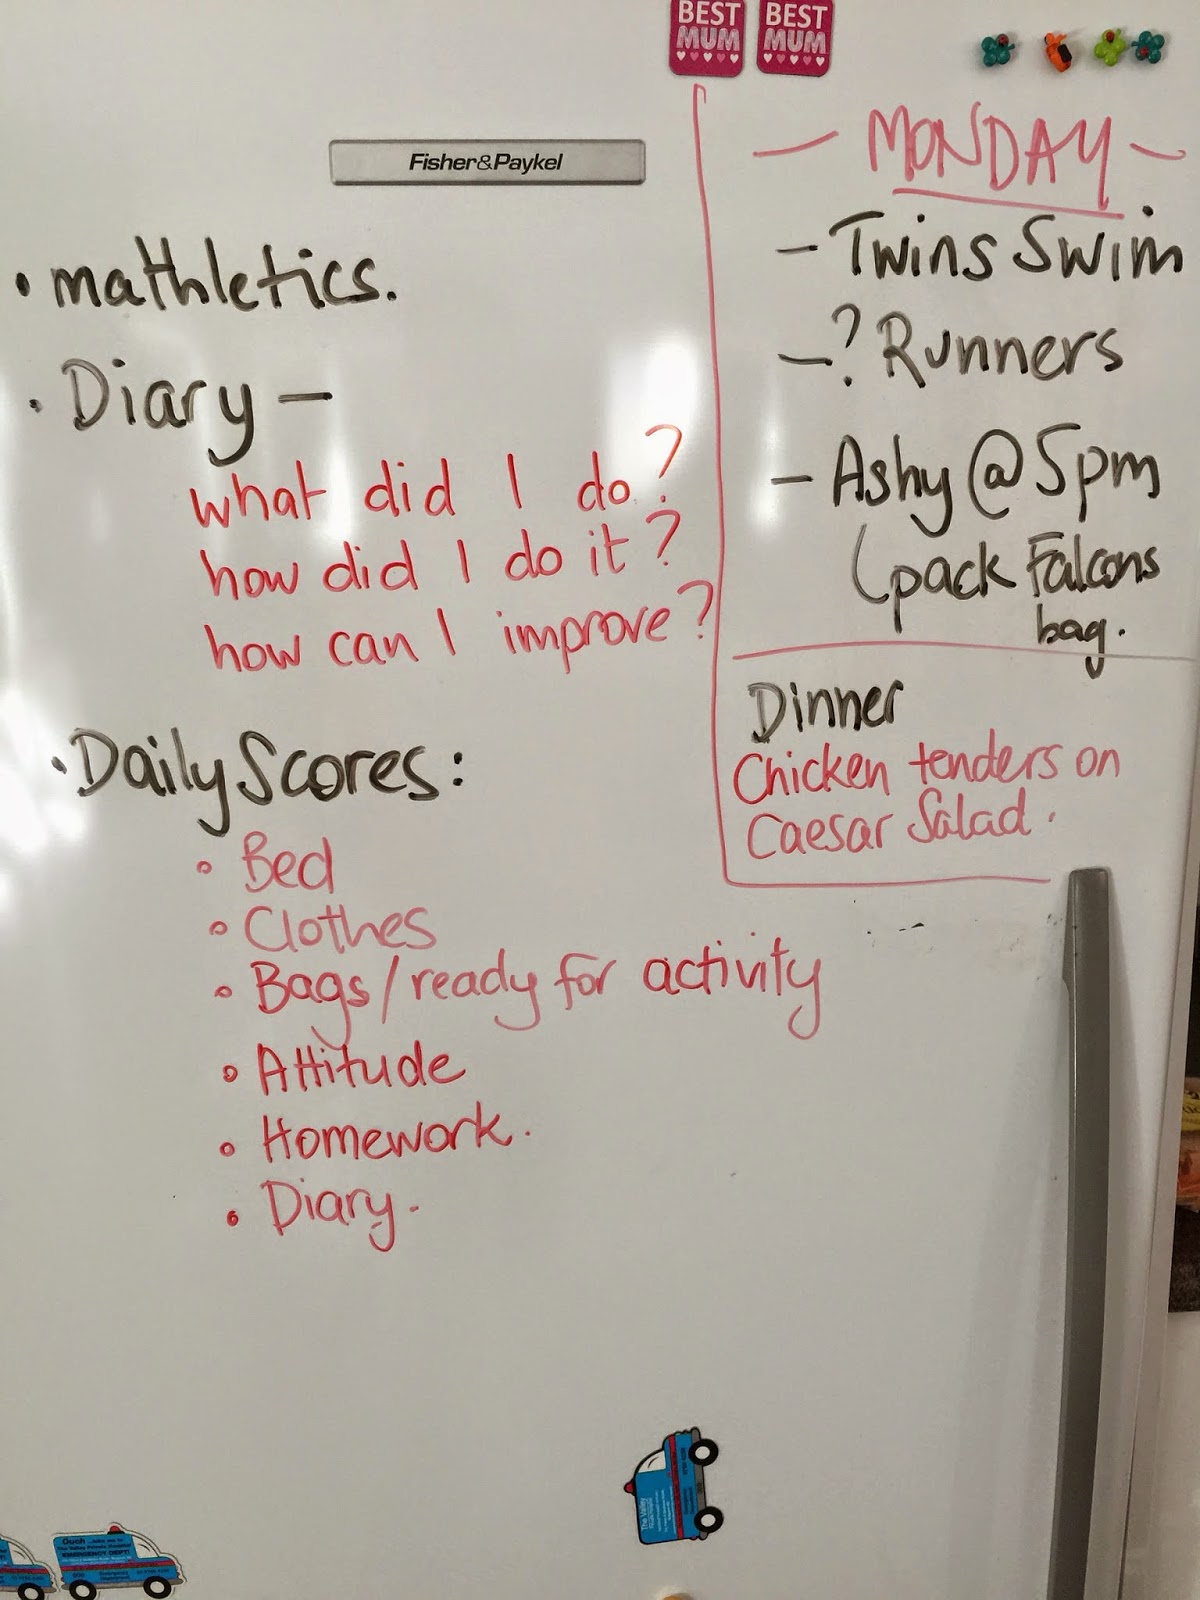 BEST MUM
BEST MUM
Fisher&Paykel
• mathletics.
• Diary –
what did I do?
how did I do it?
how can I improve?
• Daily Scores:
• Bed
• Clothes
• Bags/ready for activity
• Attitude
• Homework.
• Diary.
– MONDAY –
– Twins Swim
– ? Runners
– Ashy @ 5pm
(pack Falcons
bag.
Dinner
Chicken tenders on
Caesar Salad.
The Valley
Ouch
EMERGENCY DEPT!